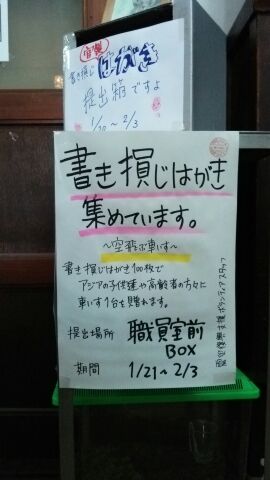 官製
書き損じ はがき
提出箱ですよ
1/20～2/3
書き損じはがき
集めています。
～空飛ぶ車いす～
書き損じはがき100枚で
アジアの子供達や高齢者の方々に
車いす1台を贈れます。
提出場所 職員室前
BOX
期間 1/21～2/3
ボランティアスタッフ